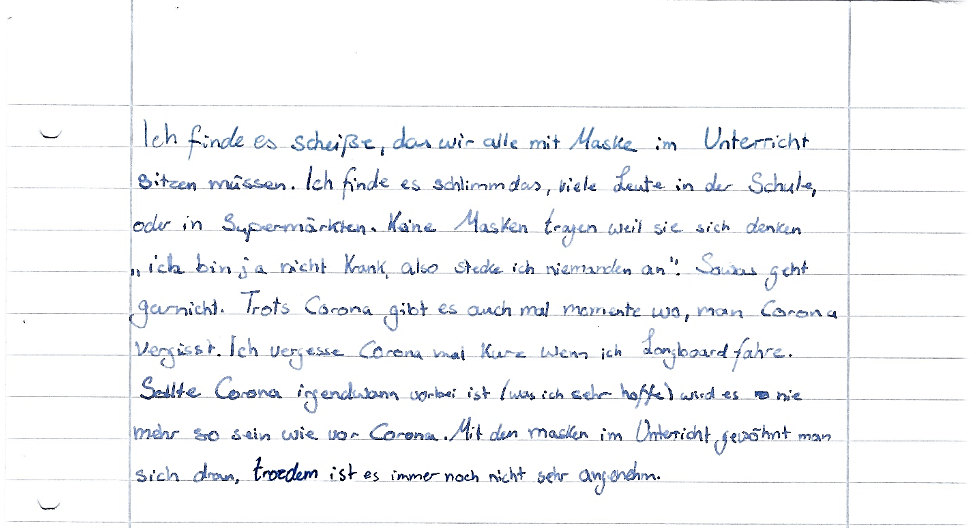 Ich finde es scheiße, das wir alle mit Maske im Unterricht
sitzen müssen. Ich finde es schlimm das, viele Leute in der Schule,
oder in Supermärkten. Keine Masken tragen weil sie sich denken
„ich bin ja nicht Krank, also stecke ich niemanden an“. Sowas geht
garnicht. Trots Corona gibt es auch mal momente wo, man Corona
vergisst. Ich vergesse Corona mal Kurz wenn ich Longboard fahre.
Sollte Corona irgendwann vorbei ist (was ich sehr hoffe) wird es nie
mehr so sein wie vor Corona. Mit den masken im Unterricht, gewöhnt man
sich dran, trozdem ist es immer noch nicht sehr angenehm.